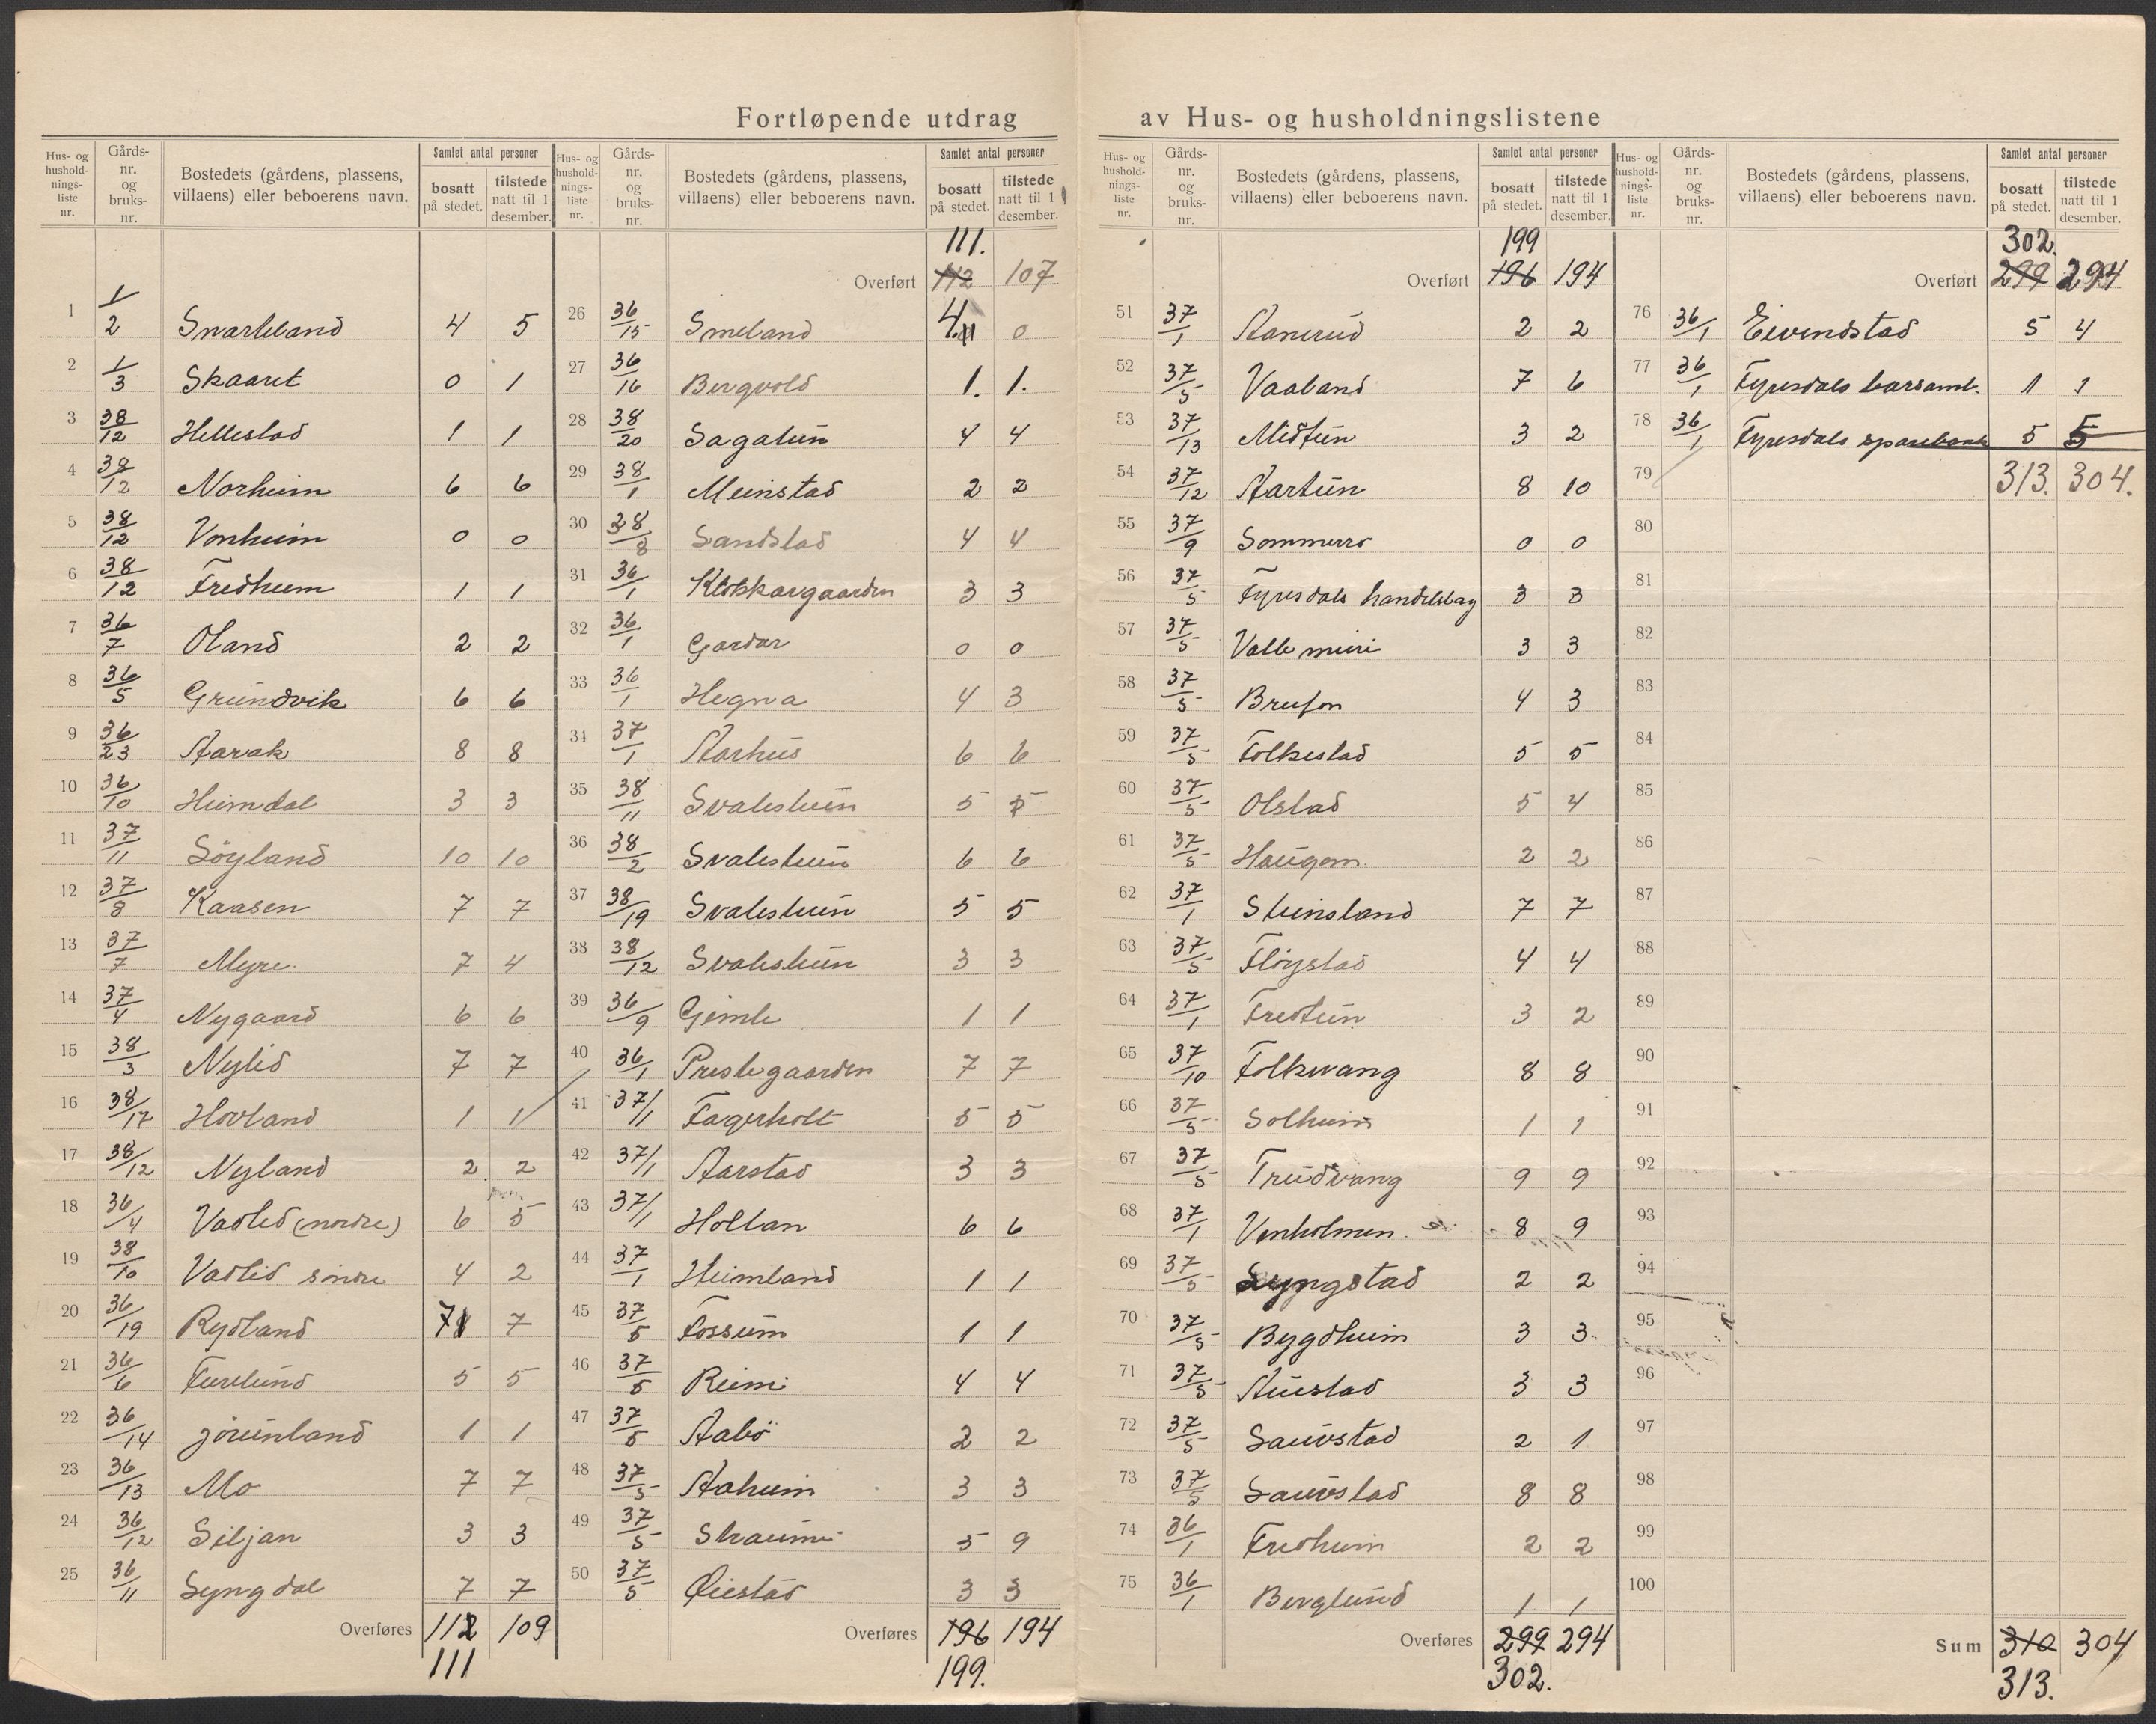 Fortløpende utdrag av Hus- og husholdningslistene
Hus- og husholdnings-liste nr. | Gårds-nr. og bruks-nr. | Bostedets (gårdens, plassens, villaens) eller beboerens navn. | Samlet antal personer | bosatt på stedet. | tilstede natt til 1 desember.
1 1/2 Snarteland 4 5
2 1/3 Skaaret 0 1
3 38/12 Hellestad 1 1
4 38/12 Norheim 6 6
5 38/12 Vonheim 0 0
6 38/12 Fredheim 1 1
7 36/7 Oland 2 2
8 36/5 Grundvik 6 6
9 36/23 Aarak 8 8
10 36/10 Heimdal 3 3
11 37/11 Söyland 10 10
12 37/8 Kaasen 7 7
13 37/7 Myre. 7 4
14 37/4 Nygaard 6 6
15 38/3 Nylid 7 7
16 38/17 Hovland 1 1
17 38/12 Nyland 2 2
18 36/4 Vadlid (nordre) 6 5
19 38/10 Vadlid söndre 4 2
20 36/19 Rydland 7 7
21 36/6 Furelund 5 5
22 36/14 Jörunland 1 1
23 36/13 Mo 7 7
24 36/12 Siljan 3 3
25 36/11 Lyngdal 7 7
Overføres 112 109
111
Hus- og husholdnings-liste nr. | Gårds-nr. og bruks-nr. | Bostedets (gårdens, plassens, villaens) eller beboerens navn. | Samlet antal personer | bosatt på stedet. | tilstede natt til 1 desember.
111.
Overført 112 107
26 36/15 Smeland 4. 0
27 36/16 Bergvold 1. 1.
28 38/20 Sagatun 4 4
29 38/1 Meinstad 2 2
30 38/8 Sandstad 4 4
31 36/1 Klokkargaarden 3 3
32 36/1 Gardar 0 0
33 36/1 Hegna 4 3
34 37/1 Aarhus 6 6
35 38/11 Svalestuen 5 5
36 38/2 Svalestuen 6 6
37 38/19 Svalestuen 5 5
38 38/12 Svalestuen 3 3
39 36/9 Gimle 1 1
40 36/1 Prestegaarden 7 7
41 37/1 Fagerholt 5 5
42 37/1 Aarstad 3 3
43 37/1 Holtan 6 6
44 37/1 Heimland 1 1
45 37/5 Fossum 1 1
46 37/5 Reimi 4 4
47 37/5 Aabö 2 2
48 37/5 Aaheim 3 3
49 37/5 Straumi 5 9
50 37/5 Øiestad 3 3
Overføres 196 194
199.
Hus- og husholdnings-liste nr. | Gårds-nr. og bruks-nr. | Bostedets (gårdens, plassens, villaens) eller beboerens navn. | Samlet antal personer | bosatt på stedet. | tilstede natt til 1 desember.
199
Overført 196 194
51 37/1 Aanerud 2 2
52 37/5 Vaaland 7 6
53 37/13 Midtun 3 2
54 37/12 Aartun 8 10
55 37/9 Sommerro 0 0
56 37/5 Fyresdals handelslag 3 3
57 37/5 Valle mini 3 3
58 37/5 Brufon 4 3
59 37/5 Folkestad 5 5
60 37/5 Olstad 5 4
61 37/5 Haugom 2 2
62 37/1 Steinsland 7 7
63 37/5 Flöystad 4 4
64 37/1 Fredtun 3 2
65 37/10 Folkvang 8 8
66 37/5 Solheim 1 1
67 37/5 Trudvang 9 9
68 37/1 Venholmen 8 9
69 37/5 Lyngstad 2 2
70 37/5 Bygdheim 3 3
71 37/5 Austad 3 3
72 37/5 Lauvstad 2 1
73 37/5 Lauvstad 8 8
74 36/1 Fredheim 2 2
75 36/1 Berglund 1 1
Overføres 299 294
302.
Hus- og husholdnings-liste nr. | Gårds-nr. og bruks-nr. | Bostedets (gårdens, plassens, villaens) eller beboerens navn. | Samlet antal personer | bosatt på stedet. | tilstede natt til 1 desember.
302.
Overført 299 294
76 36/1 Eivendstad 5 4
77 36/1 Fyresdals barsaml. 1 1
78 36/1 Fyresdals sparebank 5 5
79 313. 304.
80
81
82
83
84
85
86
87
88
89
90
91
92
93
94
95
96
97
98
99
100
Sum 310 304
313.